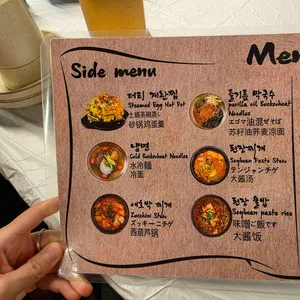 Side menu
Men
더티 계란찜
Steamed Egg Hot Pot
土鍋茶碗蒸し
砂锅鸡蛋羹
들기름 막국수
perilla oil Buckwheat
Noodles
エゴマ油混ぜそば
苏籽油荞麦凉面
냉면
Cold Buckwheat Noodles
水冷麺
冷面
된장찌개
Soybean Paste Stew
テンジャンチゲ
大酱汤
애호박 찌개
Zucchini Stew
ズッキーニチゲ
西葫芦锅
된장 술밥
Soybean paste rice
味噌ご飯です
大酱饭